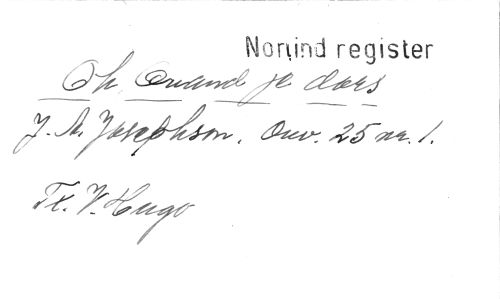 Norrind register
Oh, Quand je dors
J. A. Josephson. Ouv. 25 nr. 1.
Tx. V. Hugo